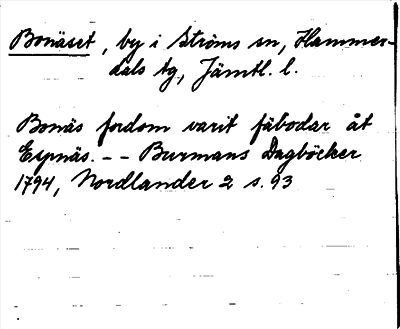 Bonäset, by i Ströms sn, Hammer-
dals tg, Jämtl. l.
Bonäs fordom varit fäbodar åt
Espnäs. -- Burmans Dagböcker
1794, Nordlander 2 s. 93